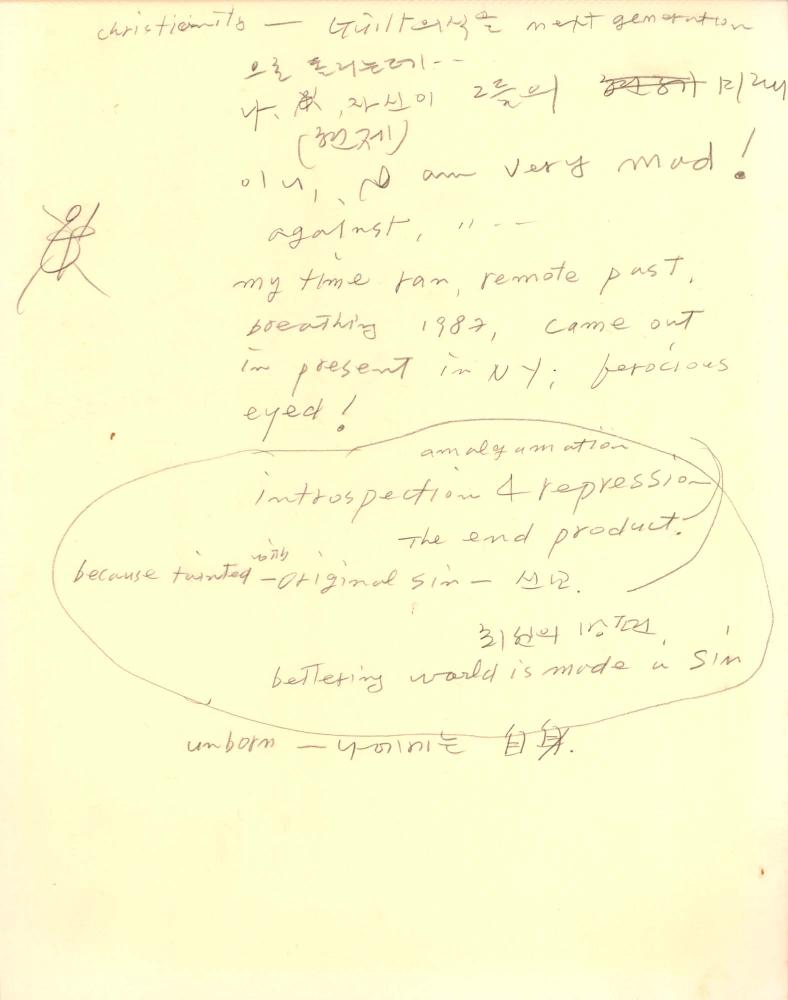 christianity — Guilt 의식을 next generation
으로 돌리는데--
나, 자신이 그들의 미래
(현제)
이니, I am very mad!
against, " --
my time ran, remote past,
breathing 1987, came out
in present in NY; ferocious
eyed!
amalgamation
introspection & repression
The end product.
because tainted —original sin— 선고.
bettering world is made a sin
unborn — 나에게는 自身.